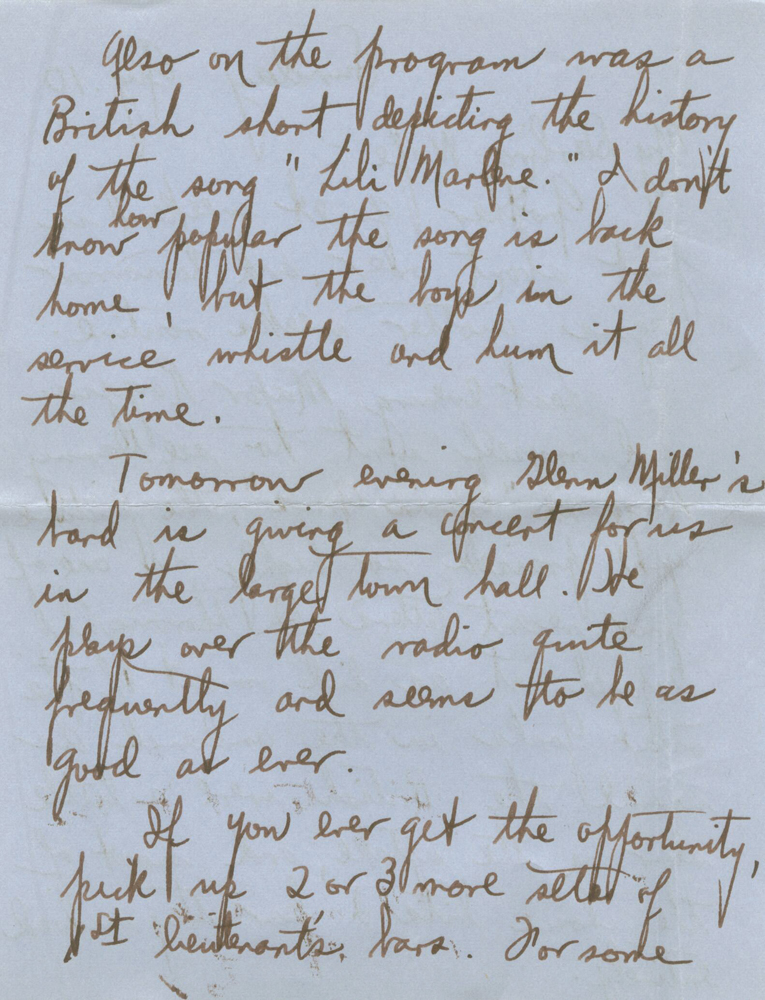 Also on the program was a
British short depicting the history
of the song "Lili Marlene." I don't
know how popular the song is back
home, but the boys in the
service whistle and hum it all
the time.
Tomorrow evening Glenn Miller's
band is giving a concert for us
in the large town hall. He
plays over the radio quite
frequently and seems to be as
good as ever.
If you ever get the opportunity,
pick up 2 or 3 more sets of
1st lieutenant's bars. For some